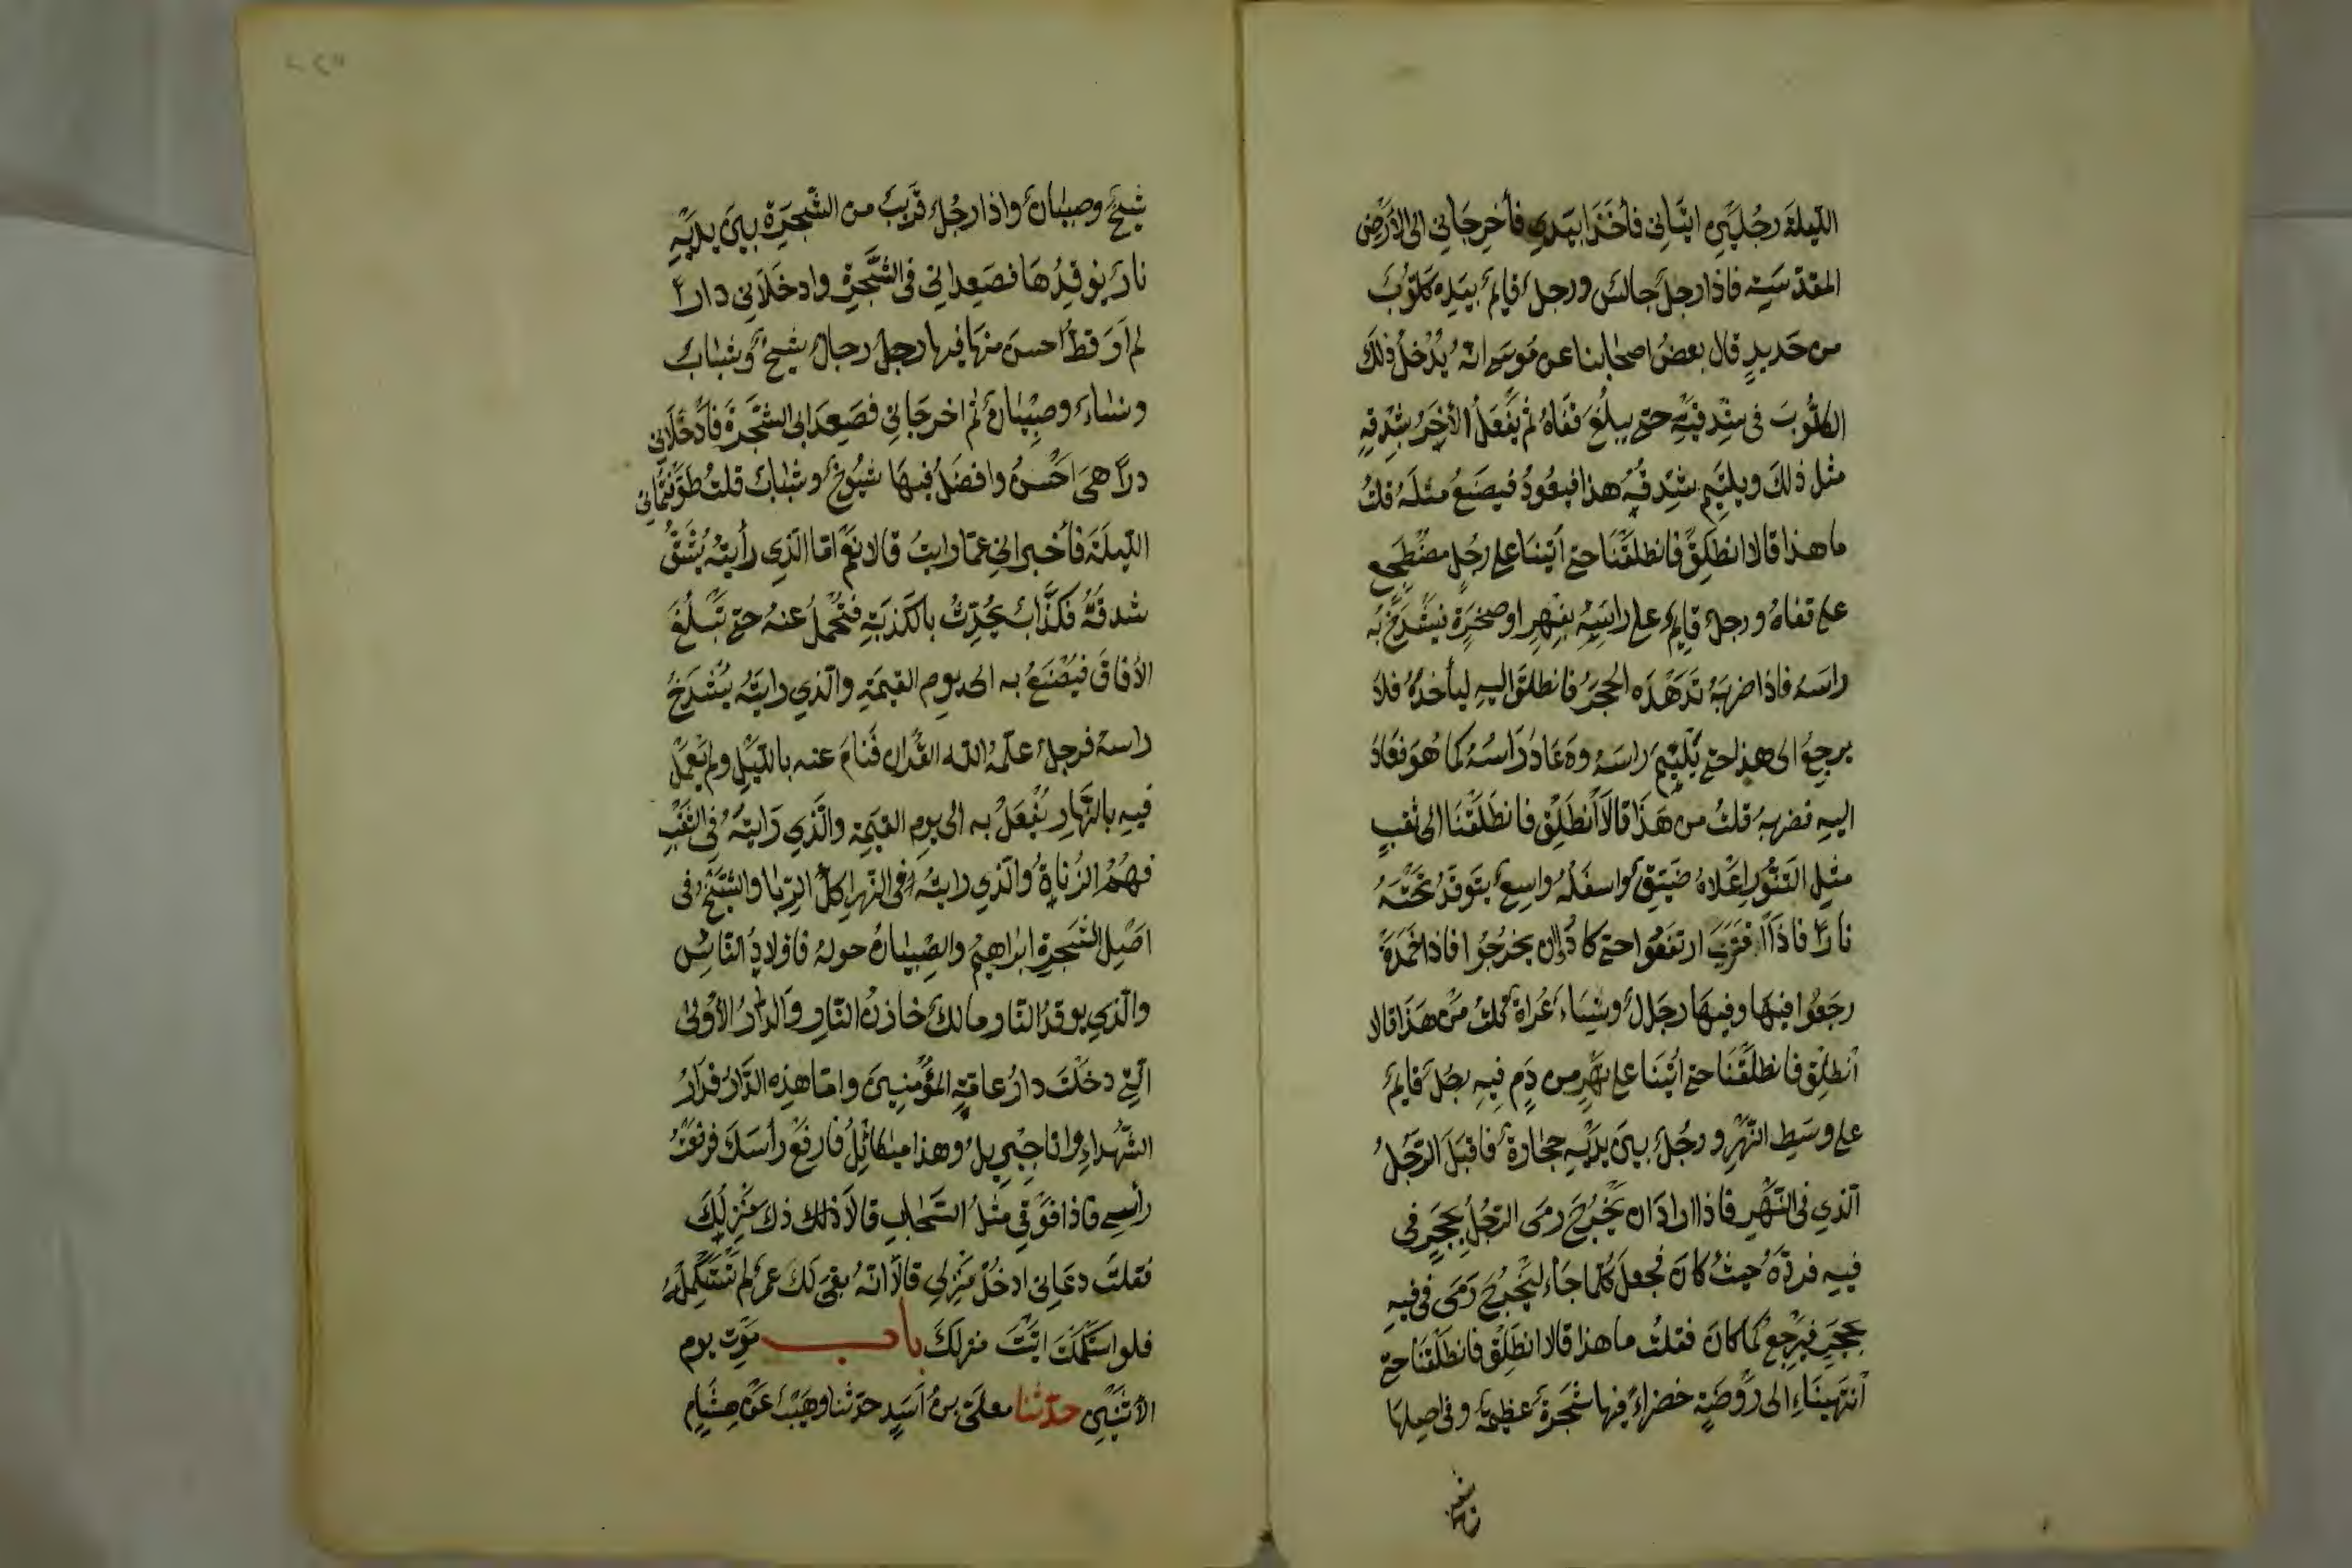 الليلة رجلين اتياني فأخذا بيدي فأخرجاني الى الأرض
المقدسة فاذا رجل جالس ورجل قايم بيده كلوب
من حديد قال بعض اصحابنا عن موسى انه يدخل ذلك
الكلوب في شدقيه حتى يبلغ قفاه ثم يفعل الأخر بشدقه
مثل ذلك ويلتئم شدقه هذا فيعود فيصنع مثله قلت
ما هذا قالا انطلق فانطلقنا حتى أتينا على رجل مضطجع
على قفاه ورجل قايم على راسه بفهر او صخرة فيشدخ به
راسه فاذا ضربه تدهده الحجر فانطلق اليه ليأخذه فلا
يرجع الى هذا حتى يلتئم راسه وعاد راسه كما هو فعاد
اليه فضربه قلت من هذا قالا انطلق فانطلقنا الى ثقب
مثل التنور اعلاه ضيق واسفله واسع يتوقد تحته
نارا فاذا اقترب ارتفعوا حتى كادوا ان يخرجوا فاذا خمدة
رجعوا فيها وفيها رجال ونساء عراة قلت من هذا قالا
انطلق فانطلقنا حتى اتينا على نهر من دم فيه رجل قايم
على وسط النهر ورجل بين يديه حجارة فاقبل الرجل
الذي في النهر فاذا اراد ان يخرج رمى الرجل بحجر في
فيه فرده حيث كان فجعل كلما جاء ليخرج رمى في فيه
بحجر فيرجع كما كان فقلت ما هذا قالا انطلق فانطلقنا حتى
انتهيناء الى روضة خضراء فيها شجرة عظيمة وفي اصلها
شيخ وصبيان واذا رجل قريب من الشجرة بين يديه
نار يوقدها فصعداني في الشجرة وادخلاني دارا
لم أر قط احسن منها فيها رجل رجال شيخ وشباب
ونساء وصبيان ثم اخرجاني فصعدابي الشجرة فأدخلاني
درا هي احسن وافضل فيها شيوخ وشباب قلت طوفتماني
الليلة فأخبراني عما رايت قالا نعم اما الذي رأيته يشق
شدقه فكذاب يحدث بالكذبة فتحمل عنه حتى تبلغ
الأفاق فيصنع به الى يوم القيمة والذي رايته يشدخ
راسه فرجل علمه الله القران فنام عنه بالليل ولم يعمل
فيه بالنهار يفعل به الى يوم القيمة والذي رايته في الثقب
فهم الزناة والذي رايته في النهر اكل الربا والشيخ في
اصل الشجرة ابراهيم والصبيان حوله فاولاد الناس
والذي يوقد النار مالك خازن النار والدار الأولى
التي دخلت دار عامة المؤمنين واما هذه الدار فدار
الشهداء وانا جبريل وهذا ميكائل فارفع رأسك فرفعت
رأسي فاذا فوقي مثل السحاب قالا ذلك ذك منزلك
فقلت دعاني ادخل منزلي قالا انه بقي لك عمر لم تستكمله
فلو استكملت اتيت منزلك باب موت يوم
الأثنين حدثنا معلى بن اسيد حدثنا وهيب عن هشام
شيخ